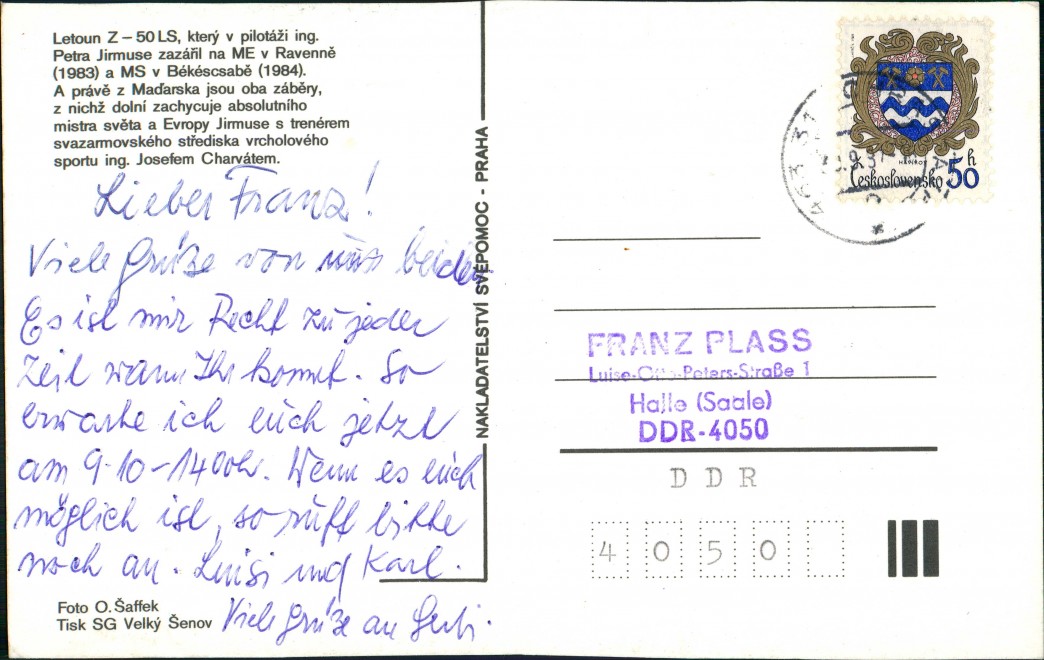 Letoun Z – 50 LS, který v pilotáži ing.
Petra Jirmuse zazářil na ME v Ravenně
(1983) a MS v Békéscsabě (1984).
A právě z Maďarska jsou oba záběry,
z nichž dolní zachycuje absolutního
mistra světa a Evropy Jirmuse s trenérem
svazarmovského střediska vrcholového
sportu ing. Josefem Charvátem.
Lieber Franz!
Viele Grüße von uns beiden
Es ist mir Recht zu jeder
Zeit wann Ihr kommt. So
erwarte ich euch jetzt
am 9-10-1400Uhr. Wenn es euch
möglich ist, so rüff bitte
noch an. Luisi und Karl.
Viele Grüße an Gerti.
Foto O. Šaffek
Tisk SG Velký Šenov
NAKLADATELSTVÍ SVÉPOMOC - PRAHA
HAVÍŘOV
Československo 50 h
463 31
FRANZ PLASS
Luise-Otto-Peters-Straße 1
Halle (Saale)
DDR-4050
DDR
4050